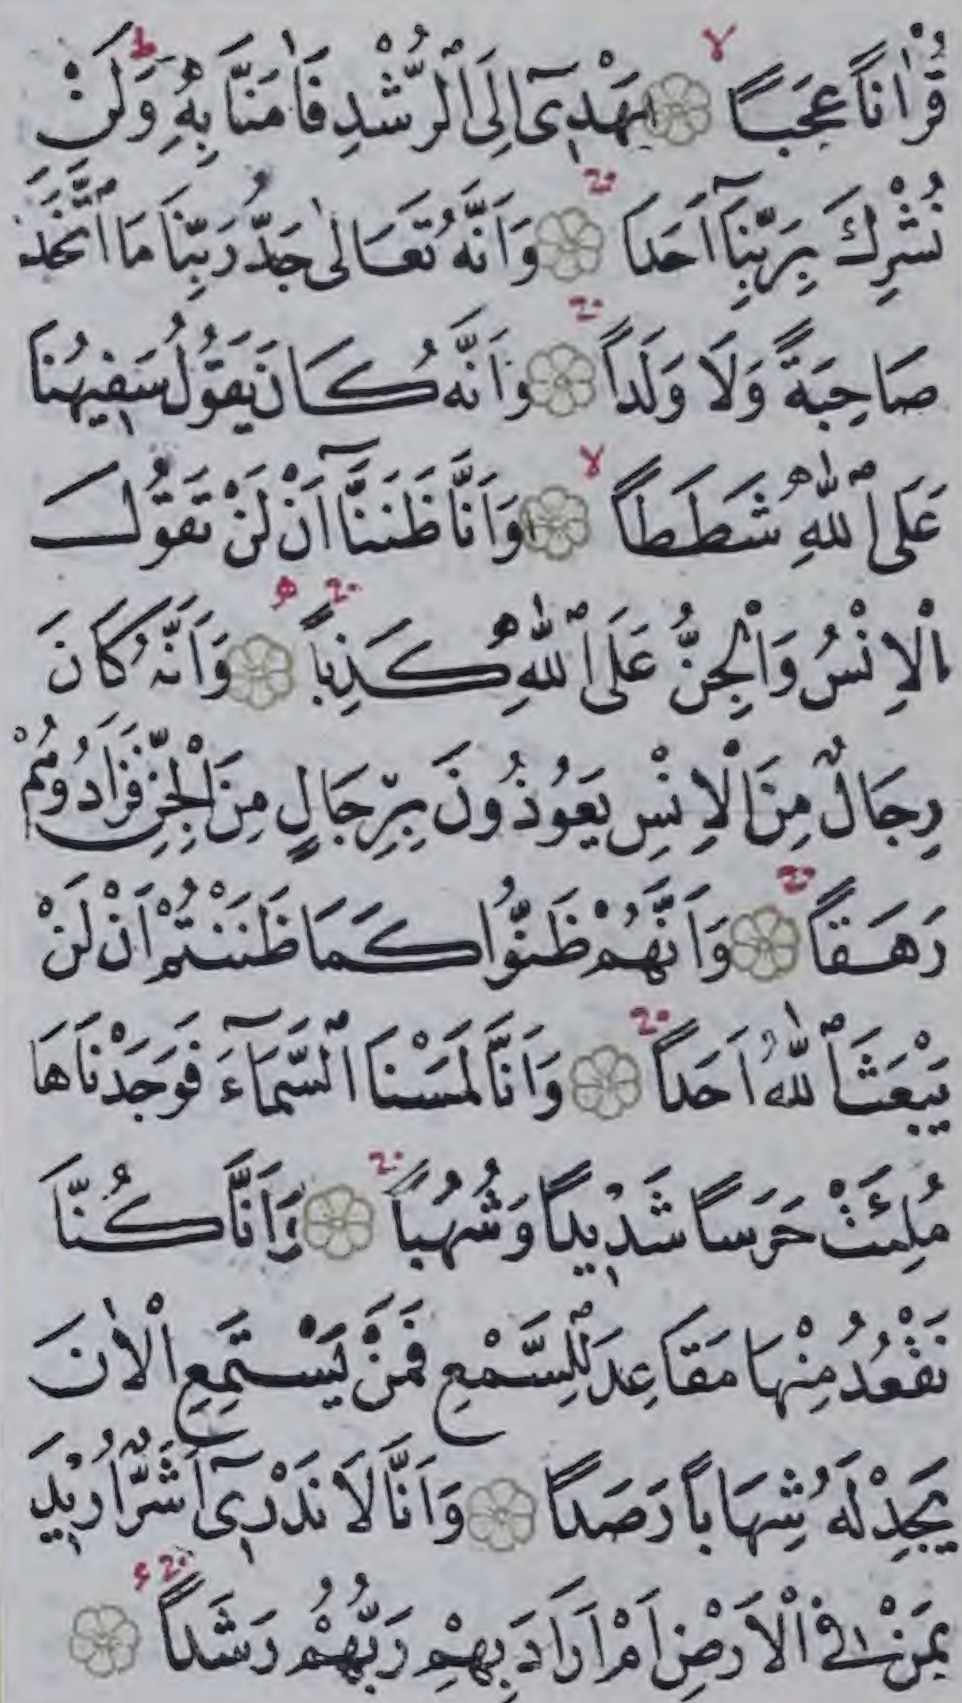 قُرْاٰنًا عَجَبًا ۙ يَهْدٖٓي اِلَى الرُّشْدِ فَاٰمَنَّا بِهٖؕ وَلَنْ
نُشْرِكَ بِرَبِّنَٓا اَحَدًا ۙ وَاَنَّهُ تَعَالٰى جَدُّ رَبِّنَا مَا اتَّخَذَ
صَاحِبَةً وَلَا وَلَدًا ۙ وَاَنَّهُ كَانَ يَقُولُ سَفٖيهُنَا
عَلَى اللّٰهِ شَطَطًا ۙ وَاَنَّا ظَنَنَّٓا اَنْ لَنْ تَقُولَ
الْاِنْسُ وَالْجِنُّ عَلَى اللّٰهِ كَذِبًا ۙ وَاَنَّهُ كَانَ
رِجَالٌ مِنَ الْاِنْسِ يَعُوذُونَ بِرِجَالٍ مِنَ الْجِنِّ فَزَادُوهُمْ
رَهَقًا ۙ وَاَنَّهُمْ ظَنُّوا كَمَا ظَنَنْتُمْ اَنْ لَنْ
يَبْعَثَ اللّٰهُ اَحَدًا ۙ وَاَنَّا لَمَسْنَا السَّمَٓاءَ فَوَجَدْنَاهَا
مُلِئَتْ حَرَسًا شَدٖيدًا وَشُهُبًا ۙ وَاَنَّا كُنَّا
نَقْعُدُ مِنْهَا مَقَاعِدَ لِلسَّمْعِ فَمَنْ يَسْتَمِعِ الْاٰنَ
يَجِدْ لَهُ شِهَابًا رَصَدًا وَاَنَّا لَا نَدْرٖٓي اَشَرٌّ اُرٖيدَ
بِمَنْ فِي الْاَرْضِ اَمْ اَرَادَ بِهِمْ رَبُّهُمْ رَشَدًا ۙ